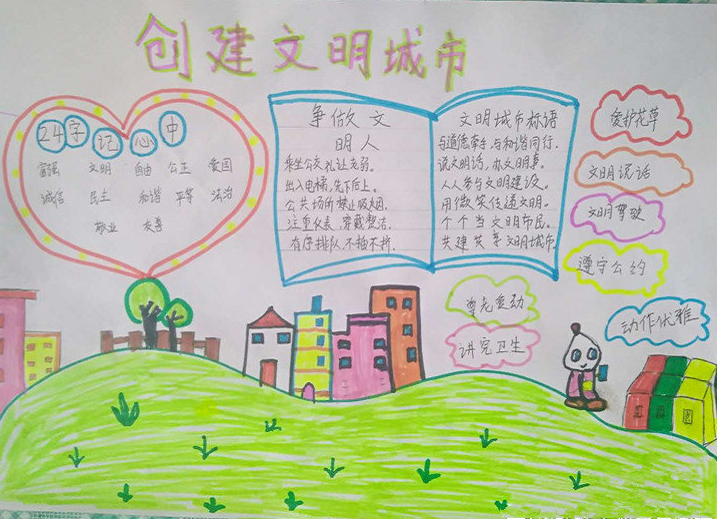 创建文明城市
24字记心中
富强 文明 自由 公正 爱国
诚信 民主 和谐 平等 法治
敬业 友善
争做文
明人
乘坐公交,礼让老弱。
出入电梯,先下后上。
公共场所禁止吸烟。
注重仪表,穿戴整洁。
有序排队,不拍不挤。
文明城市标语
与道德牵手,与和谐同行.
说文明话,办文明事。
人人参与文明建设。
用微笑传递文明。
个个当文明市民。
共建共享文明城市。
爱护花草
文明说话
文明驾驶
遵守公约
动作优雅
讲究卫生